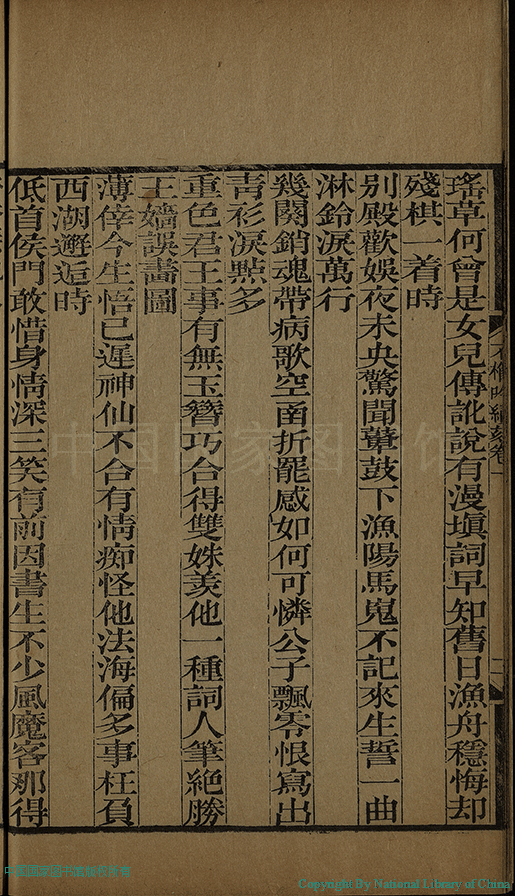 瑤草何曾是女兒傳訛說有漫塡詞早知舊日漁舟穩悔却
殘棋一着時
別殿歡娛夜未央驚聞鼙鼓下漁陽馬嵬不記來生誓一曲
淋鈴淚萬行
幾閱銷魂帶病歌空函折罷感如何可憐公子飄零恨寫出
靑衫淚㸃多
重色君王事有無玉簪巧合得雙姝羨他一種詞人筆絕勝
王嬙誤畫圖
薄倖今生悟已遲神仙不合有情痴怪他法海偏多事枉負
西湖邂逅時
低首侯門敢惜身情深三笑有前因書生不少風魔客那得
中国国家图书馆
Copyright By National Library of China